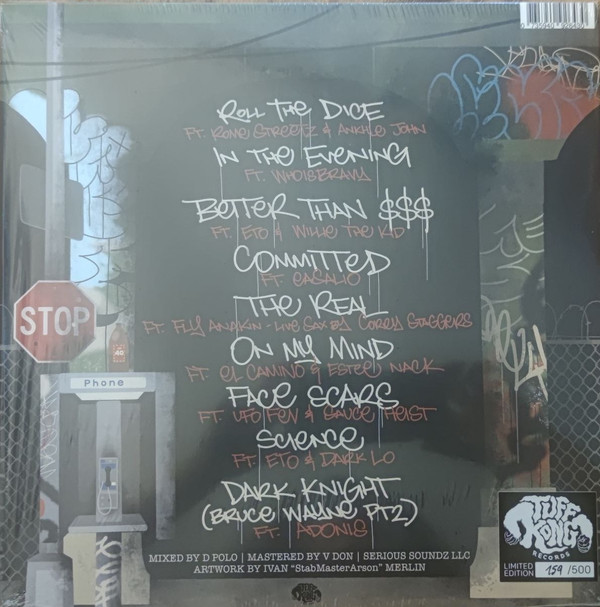 ROLL THE DICE
FT. ROME STREETZ & ANKHLE JOHN
IN THE EVENING
FT. WHOISBRAVA
BETTER THAN $$$
FT. ETO & WILLIE THE KID
COMMITTED
FT. CASALIO
THE REAL
FT. FLY ANAKIN - LIVE SAX BY COREY STAGGERS
ON MY MIND
FT. EL CAMINO & ESTEE NACK
FACE SCARS
FT. UFO FEV & SAUCE HEIST
SCIENCE
FT. ETO & DARK LO
DARK KNIGHT
(BRUCE WAYNE PT2)
FT. ADONIS
MIXED BY D POLO | MASTERED BY V DON | SERIOUS SOUNDZ LLC
ARTWORK BY IVAN "StabMasterArson" MERLIN
STOP
Phone
TUFF
KONG
RECORDS
LIMITED
EDITION 159 /500